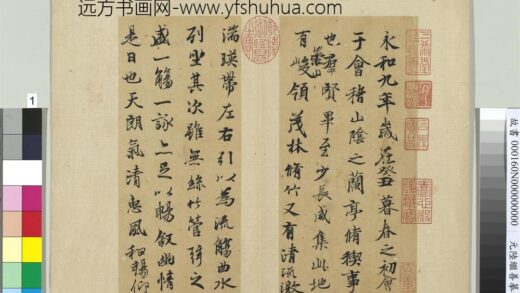 远方书画网- www.yfshuhua.com
永和九年歲在癸丑暮春之初會
于會稽山陰之蘭亭脩禊事
也羣賢畢至少長咸集此地
有崇山峻領茂林脩竹又有清流激
湍暎帶左右引以為流觴曲水
列坐其次雖無絲竹管弦之
盛一觴一詠亦足以暢敘幽情
是日也天朗氣清惠風和暢仰
1
故書 000160N000000000 元陸繼善摹